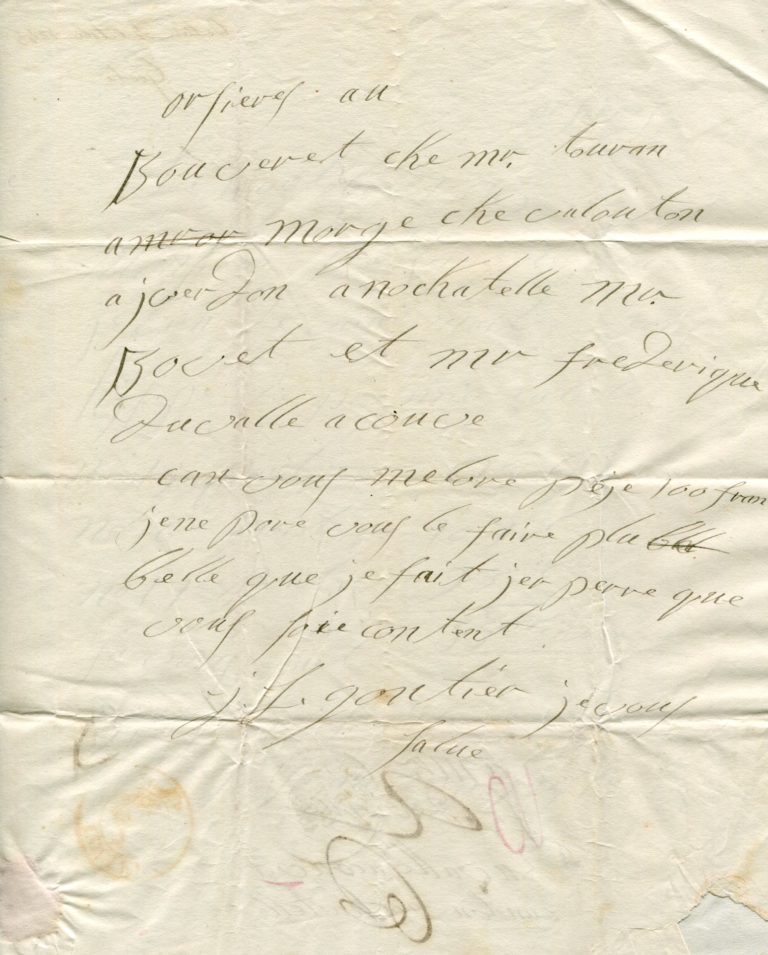 orsieres au
Bouveret che mr. touvan
a mror morge che valouton
a jverdon a nochatelle mr.
Bovet et mr frederique
duvalle a couve
car vous me lore péje 100 fran
je ne pore vous le faire plu
belle que je fait jer perre que
vous soie content
j. L. gontier je vous
salue